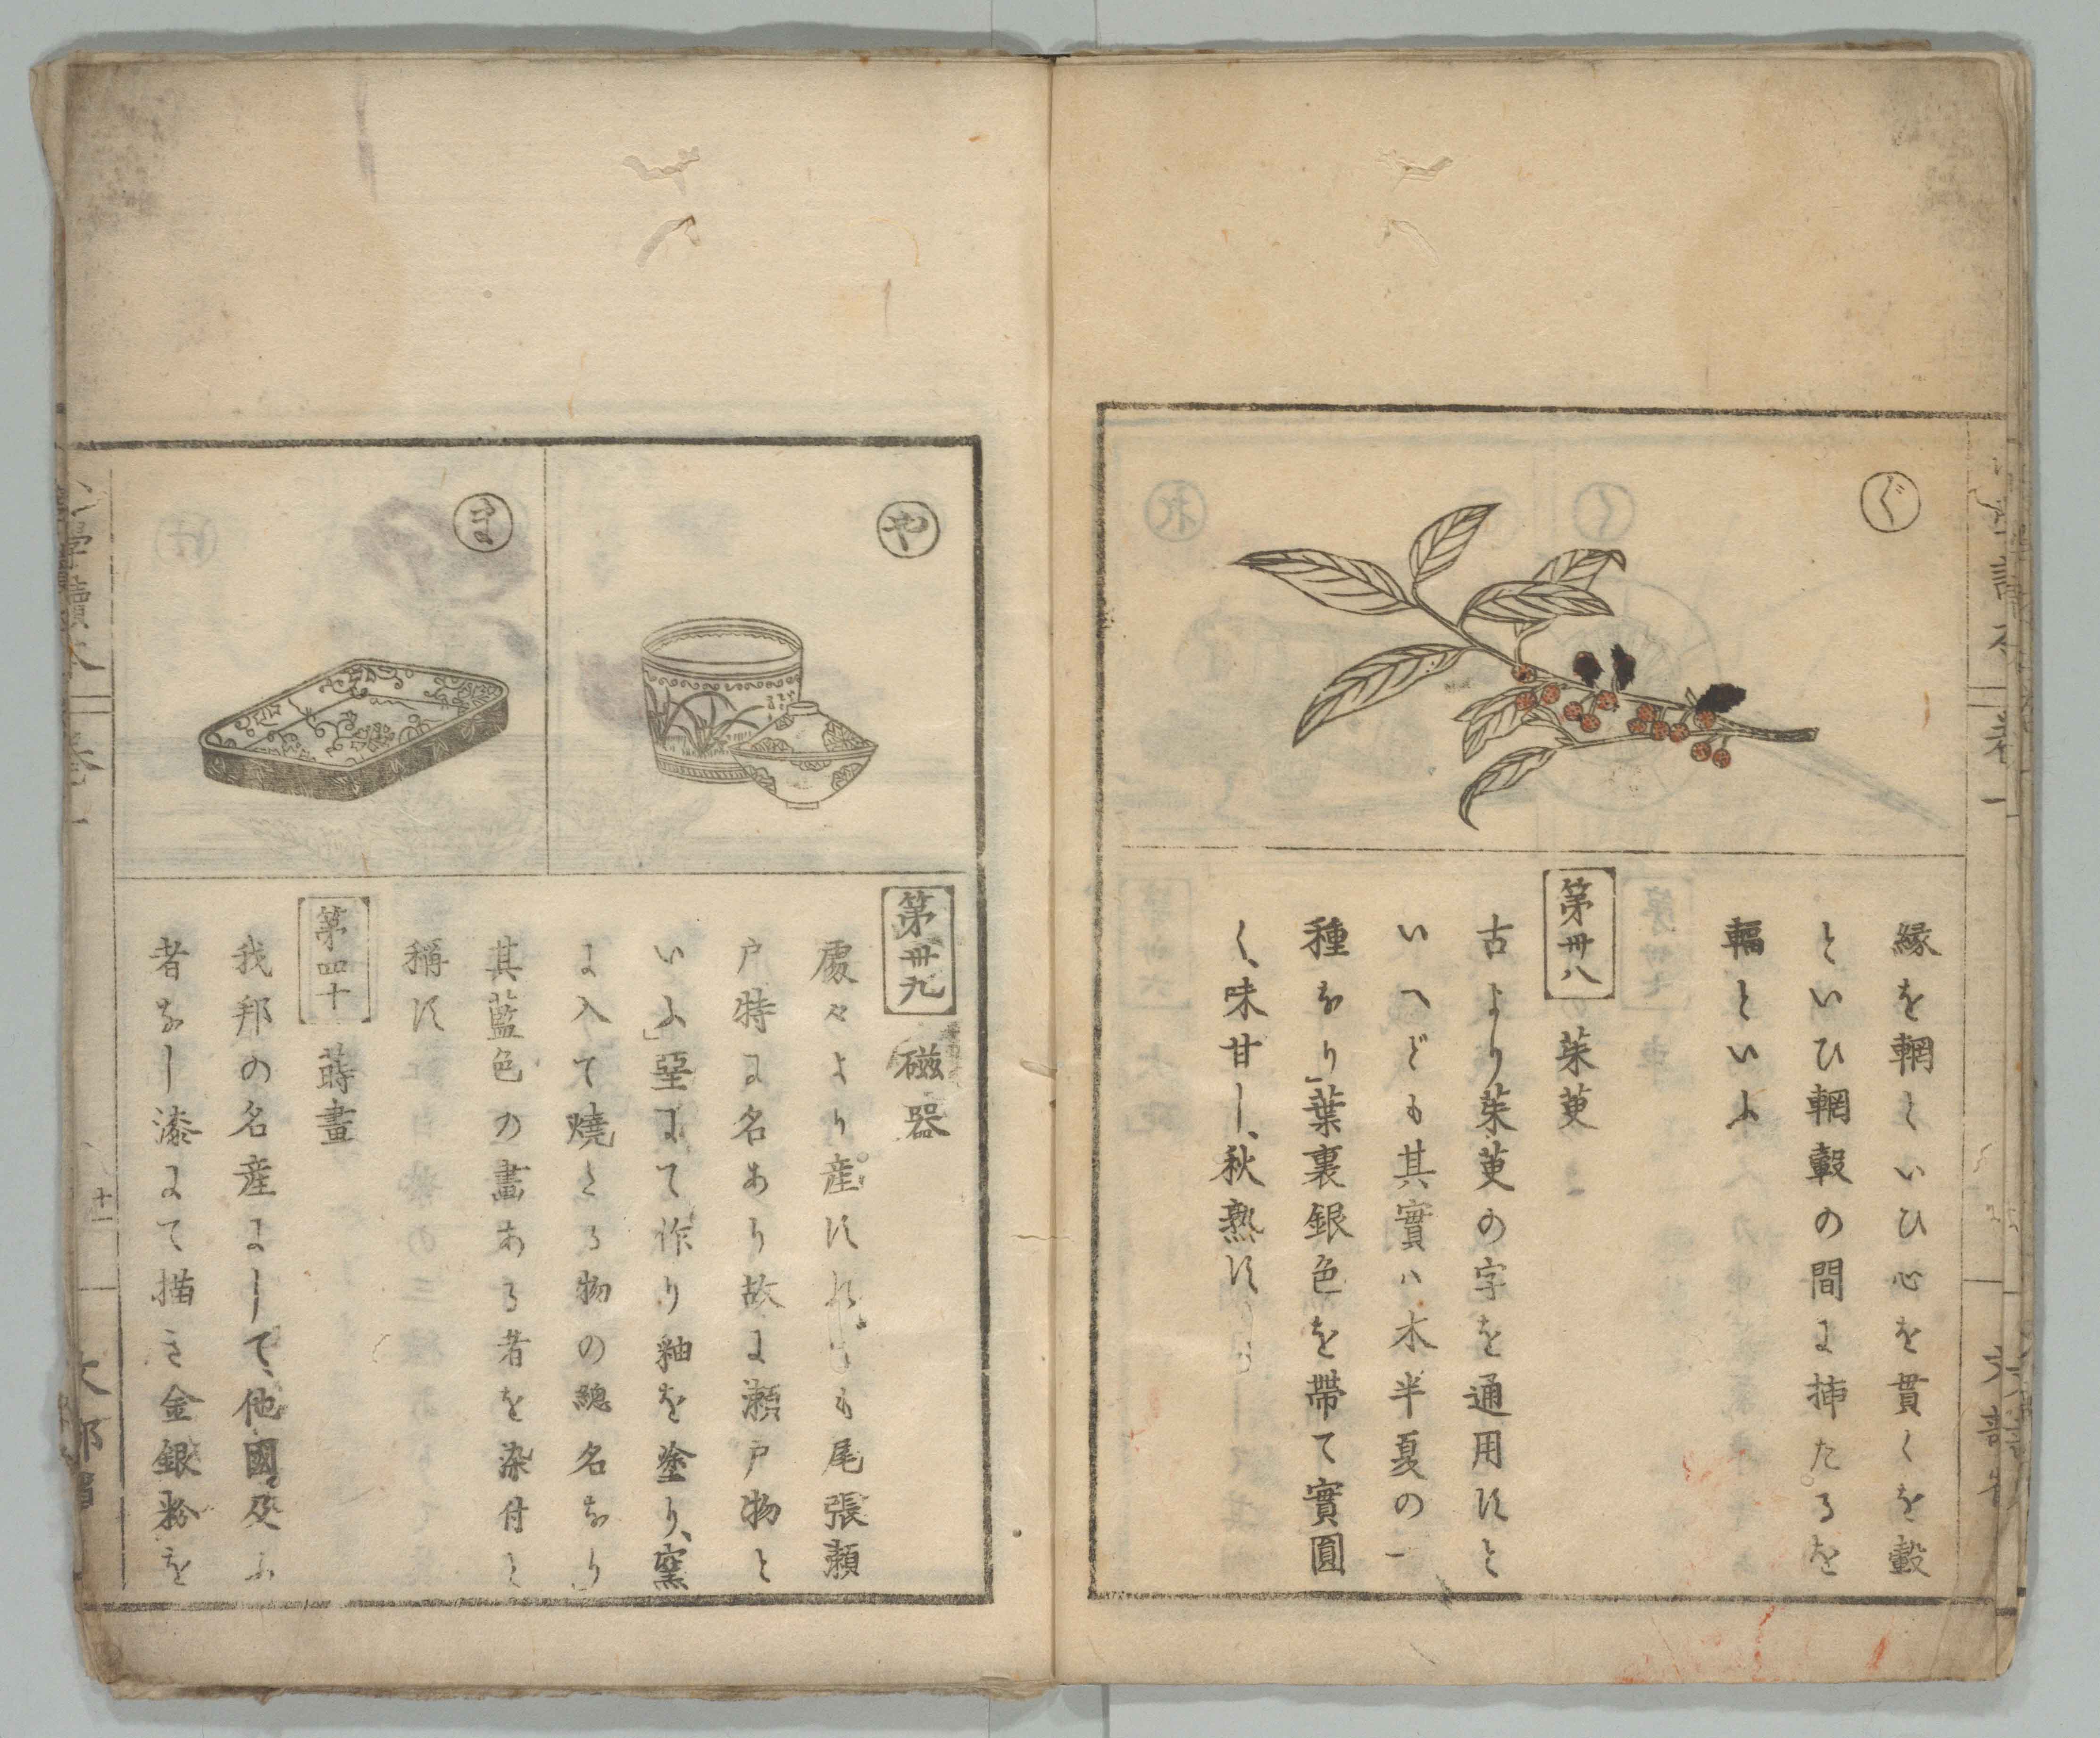 ぐ
縁を輞といひ心を貫くを轂
といひ輞轂の間に挿たるを
輻といふ
第卅八 茱萸
古より茱萸の字を通用すと
いへども其實ハ木半夏の一
種なり」葉裏銀色を帶て實圓
く、味甘し、秋熟す
や
ま
第卅九 磁器
處々より産すれども尾張瀬
戸特に名あり故に瀬戸物と
いふ」堊にて作り釉を塗り、窯
に入て燒たる物の總名なり」
其藍色の畫ある者を染付と
稱す
第四十 蒔畫
我邦の名産にして、他國及ふ
者なし漆にて描き金銀粉を
小學讀本 卷一 十一 文部省